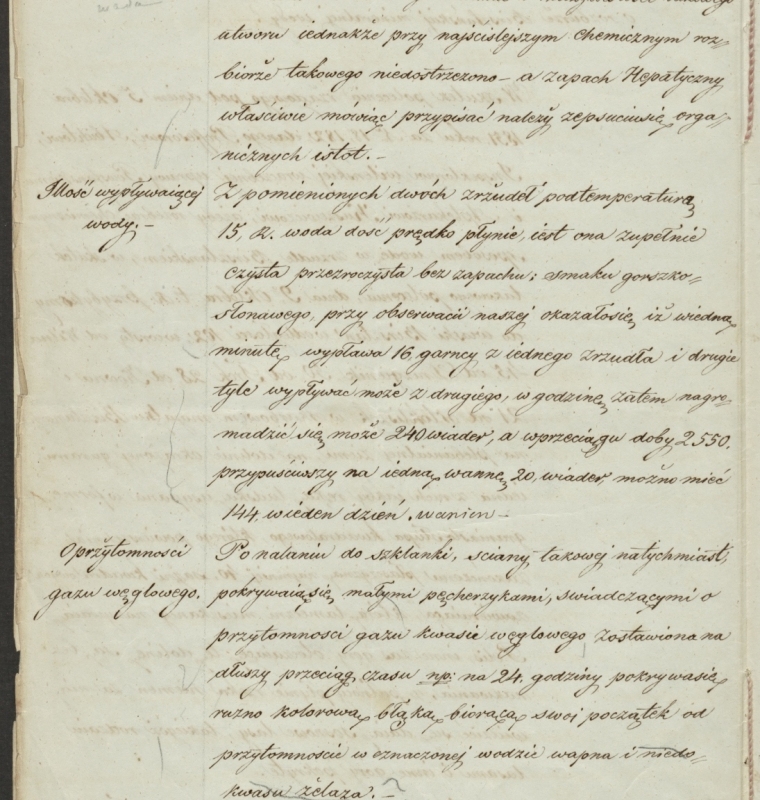 utworu iednakże przy najściślejszym Chemicznym roz=
biorze takowego niedostrzeżono – a zapach Hepatyczny
właściwie mówiąc przypisać należy zepsuciusię orga=
nicznych istot. –
Illość wypływaiącej
wody. –
Z pomienionych dwóch zrzudeł podtemperaturą
15, R. woda dość prędko płynie, iest ona zupełnie
czysta przezroczysta bez zapachu; smaku gorszko=
słonawego, przy obserwacii naszej okazałosię iż wiedną
minutę wypława 16, garncy z iednego zrzudła i drugie
tyle wypływać może z drugiego, w godzinę zatem nagro=
madzić się może 240 wiader, a wprzeciągu doby 2,550.
przypuściwszy na iedną wannę 20, wiader, możno mieć
144, wieden dzień wanien –
O przytomności
gazu węglowego.
Po nalaniu do szklanki, sciany takowej natychmiast,
pokrywaiąsię małymi pęcherzykami, swiadczącymi o
przytomności gazu kwasu węglowego zostawiona na
dłuszy przeciąg czasu np: na 24. godziny pokrywasię
razno kolorową błąką biorącą swoj początek od
przytomnoscie w oznaczonej wodzie wapna i niedo=
kwasu żelaza. –